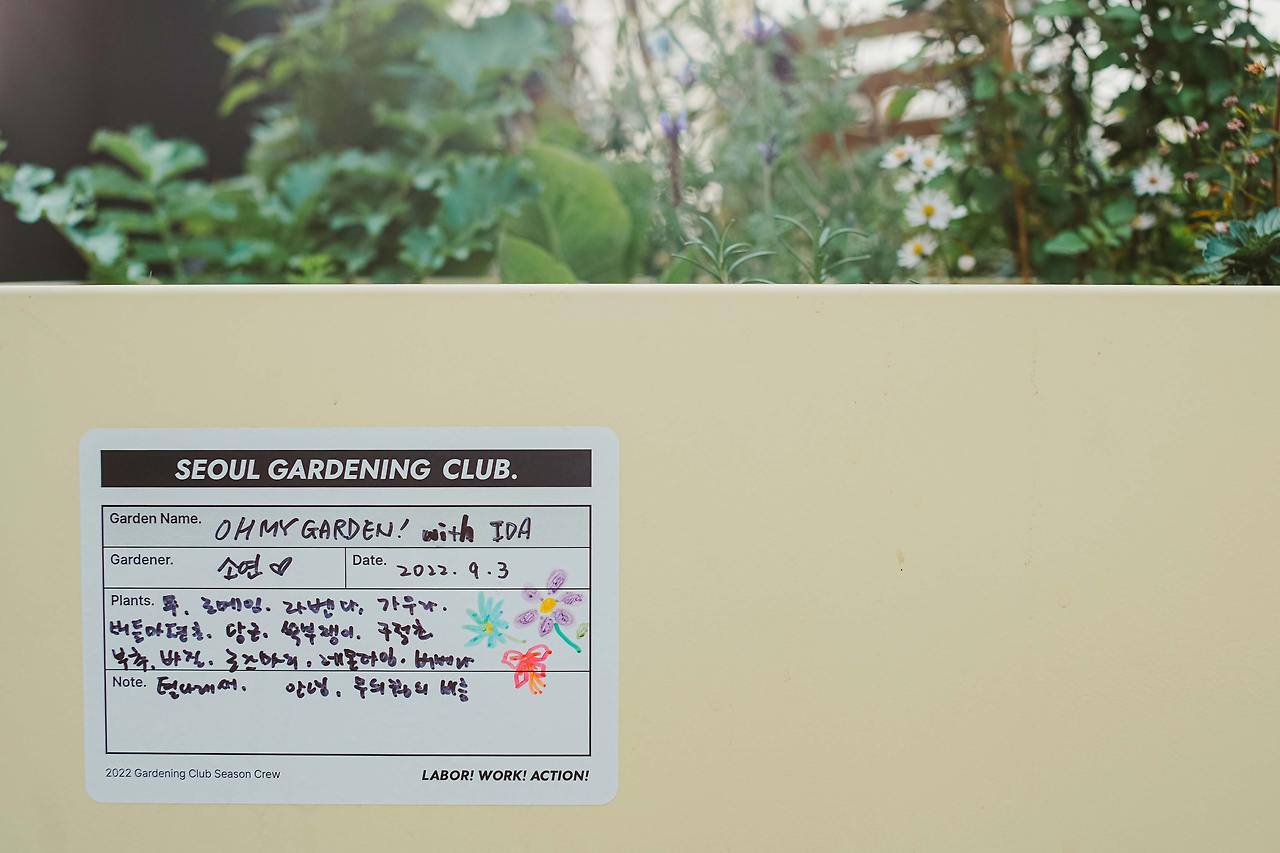 SEOUL GARDENING CLUB.
Garden Name. OH MY GARDEN! with IDA
Gardener. 소연♡ Date. 2022. 9. 3
Plants. 로메인. 라벤다. 가우라.
버들마편초. 당근. 쑥부쟁이. 구절초
부추, 바질. 로즈마리. 레몬타임. 버베나
Note. 안녕,
2022 Gardening Club Season Crew LABOR! WORK! ACTION!